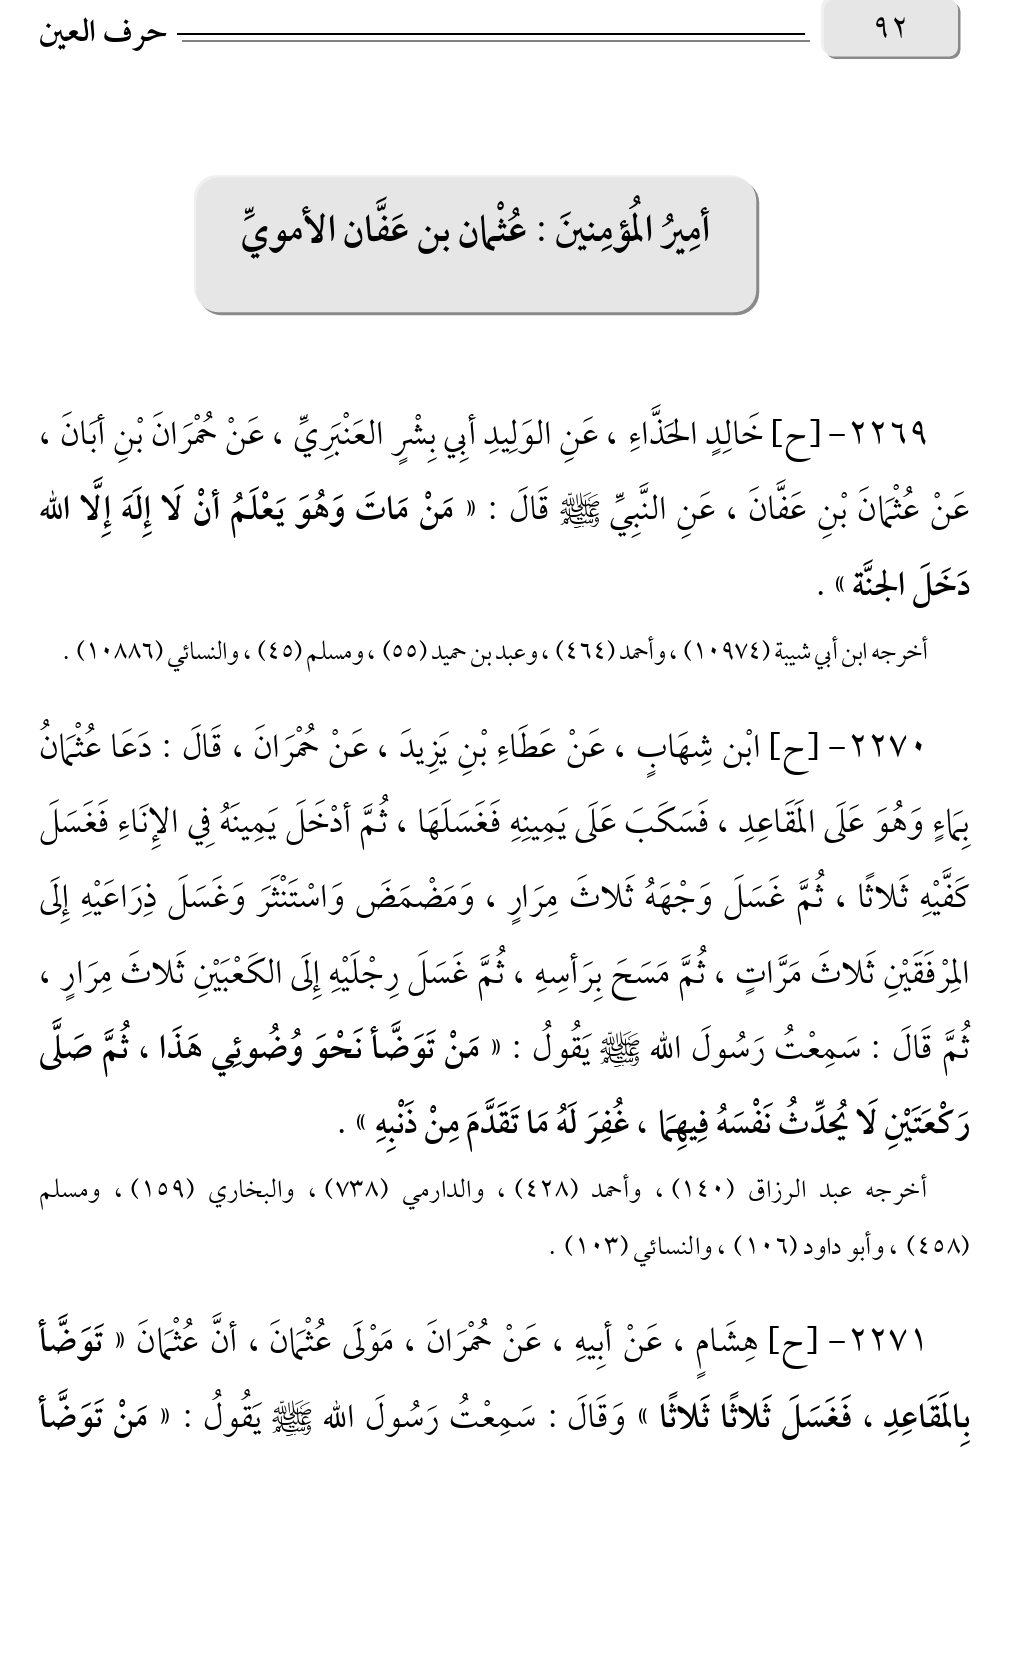 ٩٢
حرف العين
أمِيرُ المُؤمِنينَ : عُثْمان بن عَفَّان الأمويِّ
٢٢٦٩- [ح] خَالِدٍ الحَذَّاءِ ، عَنِ الوَلِيدِ أبِي بِشْرٍ العَنْبَرِيِّ ، عَنْ حُمْرَانَ بْنِ أبَانَ ،
عَنْ عُثْمَانَ بْنِ عَفَّانَ ، عَنِ النَّبِيِّ ﷺ قَالَ : « مَنْ مَاتَ وَهُوَ يَعْلَمُ أنْ لَا إِلَهَ إِلَّا الله
دَخَلَ الجنَّة » .
أخرجه ابن أبي شيبة (١٠٩٧٤) ، وأحمد (٤٦٤) ، وعبد بن حميد (٥٥) ، ومسلم (٤٥) ، والنسائي (١٠٨٨٦) .
٢٢٧٠- [ح] ابْن شِهَابٍ ، عَنْ عَطَاءِ بْنِ يَزِيدَ ، عَنْ حُمْرَانَ ، قَالَ : دَعَا عُثْمَانُ
بِمَاءٍ وَهُوَ عَلَى المَقَاعِدِ ، فَسَكَبَ عَلَى يَمِينِهِ فَغَسَلَهَا ، ثُمَّ أدْخَلَ يَمِينَهُ فِي الإِنَاءِ فَغَسَلَ
كَفَّيْهِ ثَلاثًا ، ثُمَّ غَسَلَ وَجْهَهُ ثَلاثَ مِرَارٍ ، وَمَضْمَضَ وَاسْتَنْثَرَ وَغَسَلَ ذِرَاعَيْهِ إِلَى
المِرْفَقَيْنِ ثَلاثَ مَرَّاتٍ ، ثُمَّ مَسَحَ بِرَأسِهِ ، ثُمَّ غَسَلَ رِجْلَيْهِ إِلَى الكَعْبَيْنِ ثَلاثَ مِرَارٍ ،
ثُمَّ قَالَ : سَمِعْتُ رَسُولَ الله ﷺ يَقُولُ : « مَنْ تَوَضَّأ نَحْوَ وُضُوئِي هَذَا ، ثُمَّ صَلَّى
رَكْعَتَيْنِ لَا يُحَدِّثُ نَفْسَهُ فِيهِمَا ، غُفِرَ لَهُ مَا تَقَدَّمَ مِنْ ذَنْبِهِ » .
أخرجه عبد الرزاق (١٤٠) ، وأحمد (٤٢٨) ، والدارمي (٧٣٨) ، والبخاري (١٥٩) ، ومسلم
(٤٥٨) ، وأبو داود (١٠٦) ، والنسائي (١٠٣) .
٢٢٧١- [ح] هِشَامٍ ، عَنْ أبِيهِ ، عَنْ حُمْرَانَ ، مَوْلَى عُثْمَانَ ، أنَّ عُثْمَانَ « تَوَضَّأ
بِالمَقَاعِدِ ، فَغَسَلَ ثَلاثًا ثَلاثًا » وَقَالَ : سَمِعْتُ رَسُولَ الله ﷺ يَقُولُ : « مَنْ تَوَضَّأ